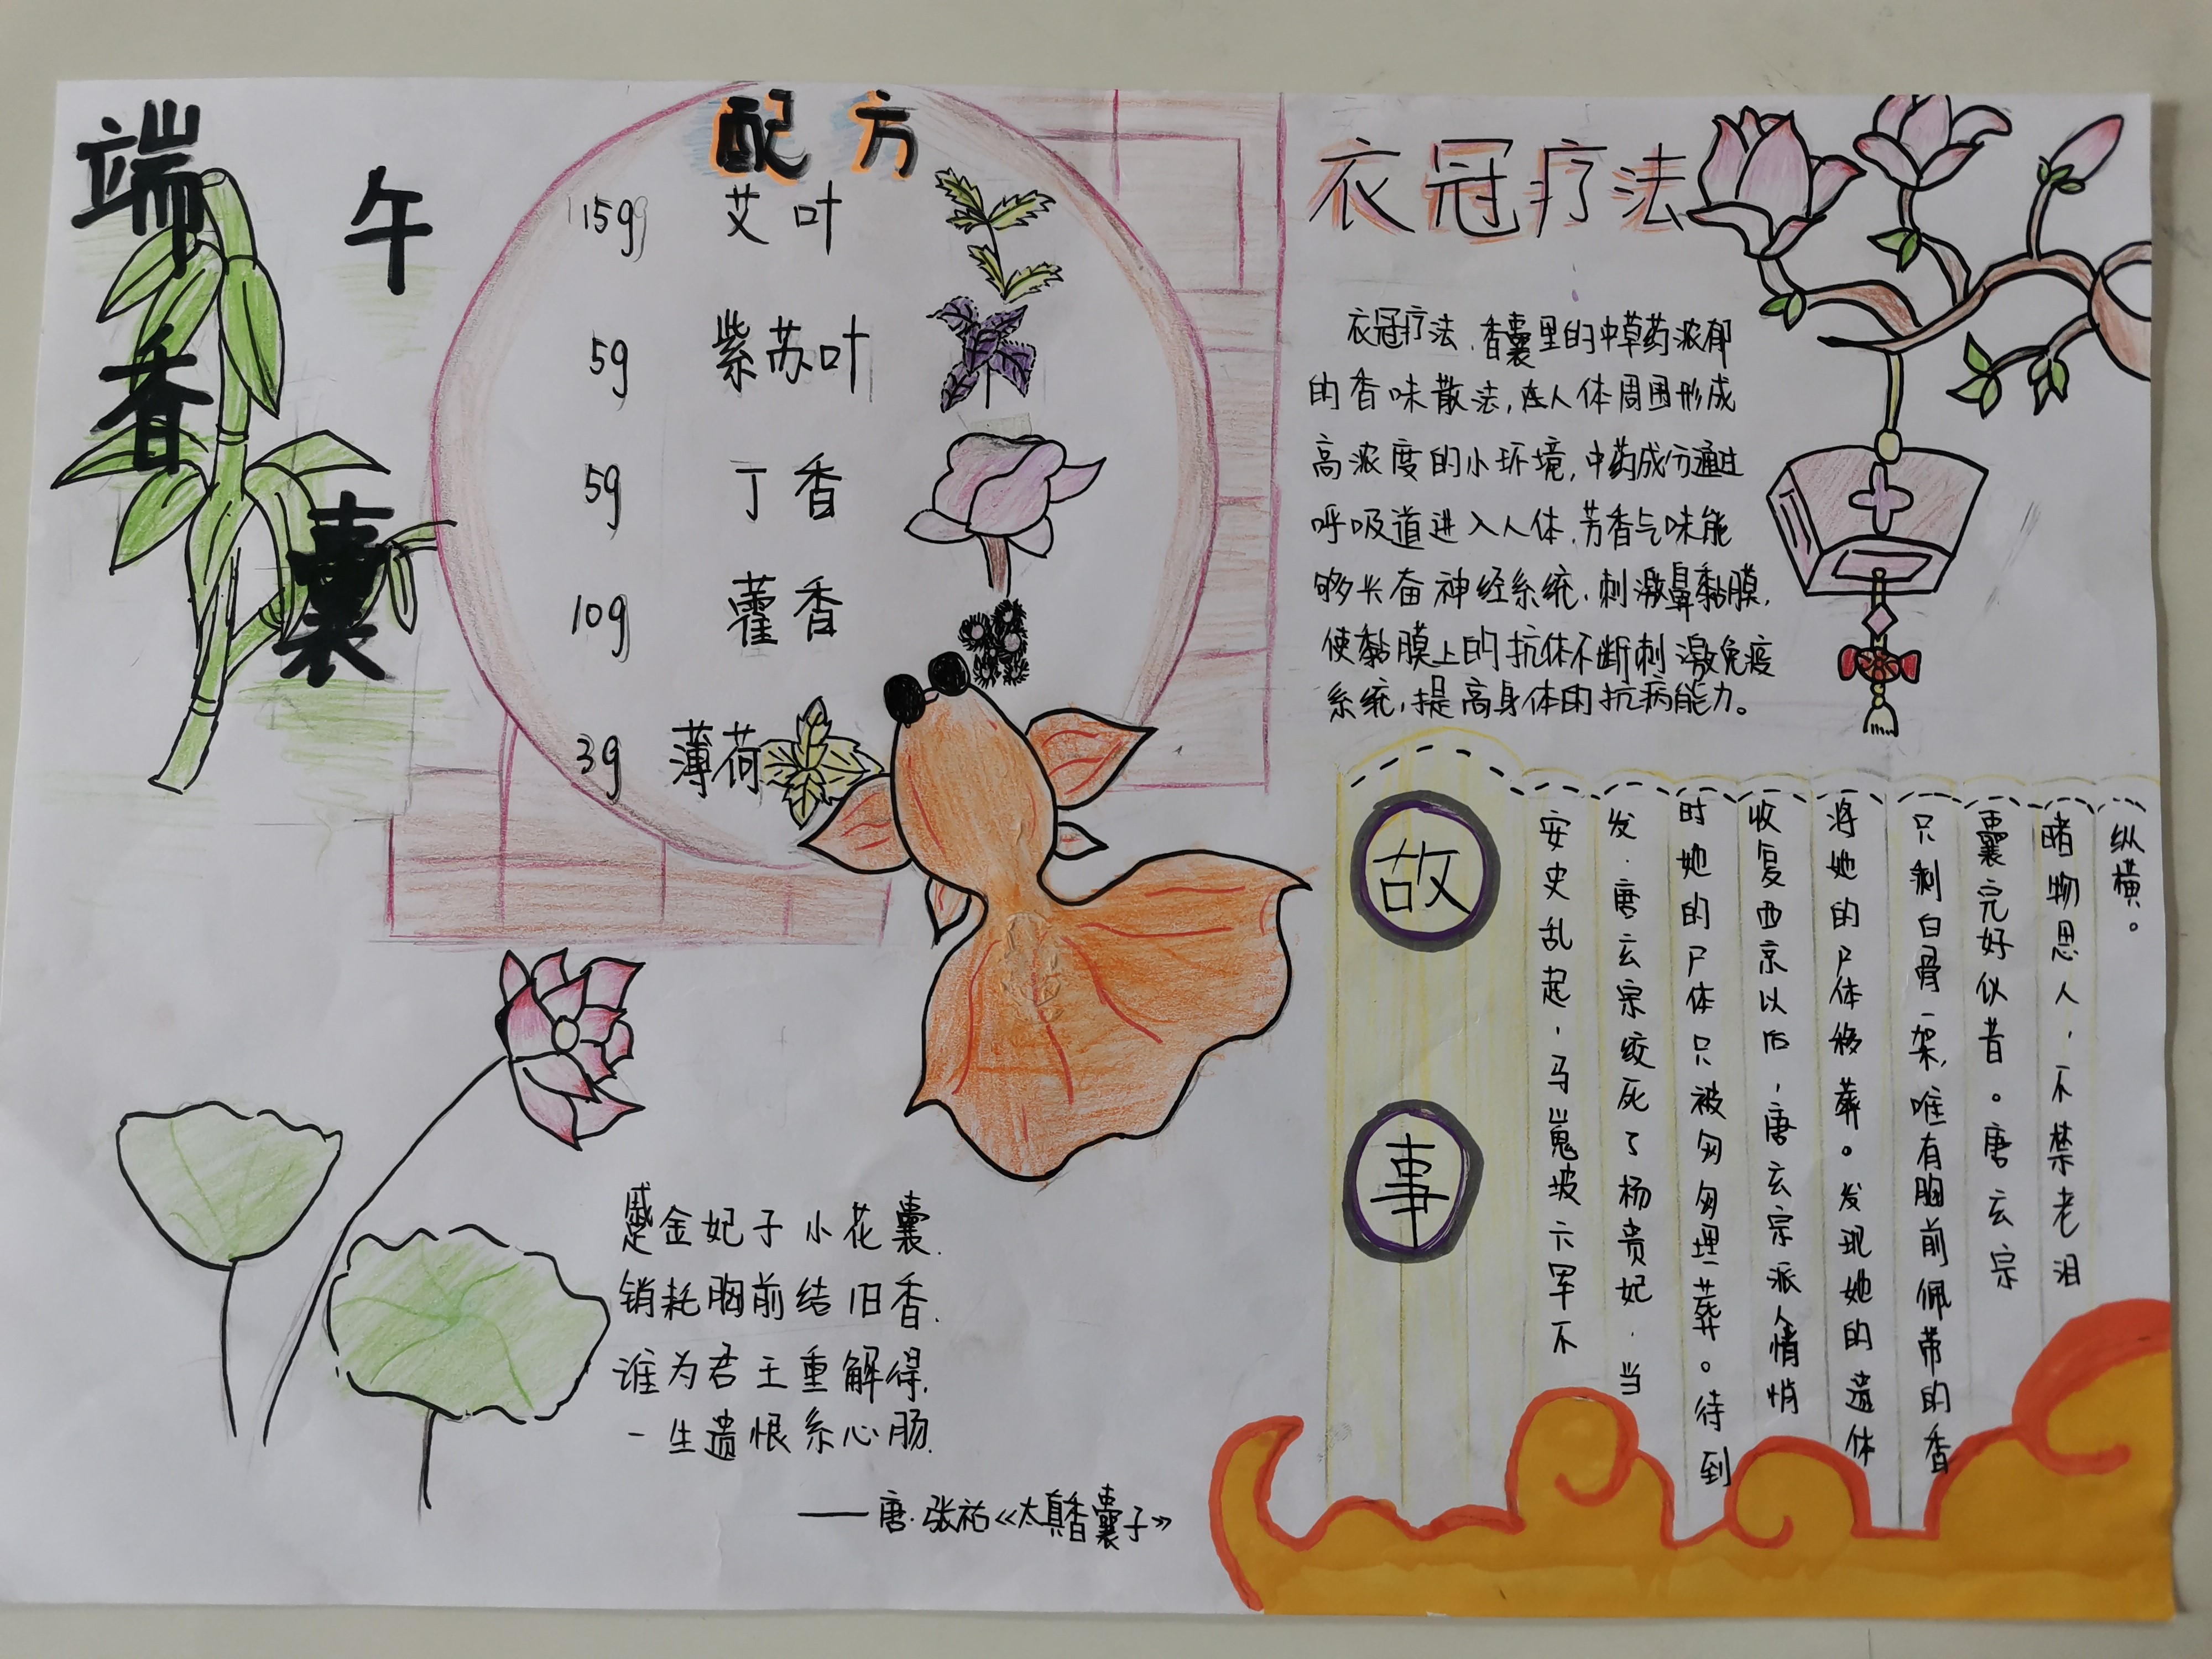 端午
香囊
配方
15g 艾叶
5g 紫苏叶
5g 丁香
10g 藿香
3g 薄荷
衣冠疗法
衣冠疗法,香囊里的中草药浓郁
的香味散法,在人体周围形成
高浓度的小环境,中药成分通过
呼吸道进入人体.芳香气味能
够兴奋神经系统,刺激鼻黏膜,
使黏膜上的抗体不断刺激免疫
系统,提高身体的抗病能力。
故事
安史乱起,马嵬坡六军不
发.唐玄宗绞死了杨贵妃.当
时她的尸体只被匆匆埋葬。待到
收复西京以后,唐玄宗派人悄悄
将她的尸体移葬。发现她的遗体
只剩白骨一架,唯有胸前佩带的香
囊完好似昔。唐玄宗
睹物思人,不禁老泪
纵横。
蹙金妃子小花囊.
销耗胸前结旧香.
谁为君王重解得.
一生遗恨系心肠.
——唐.张祜《太真香囊子》